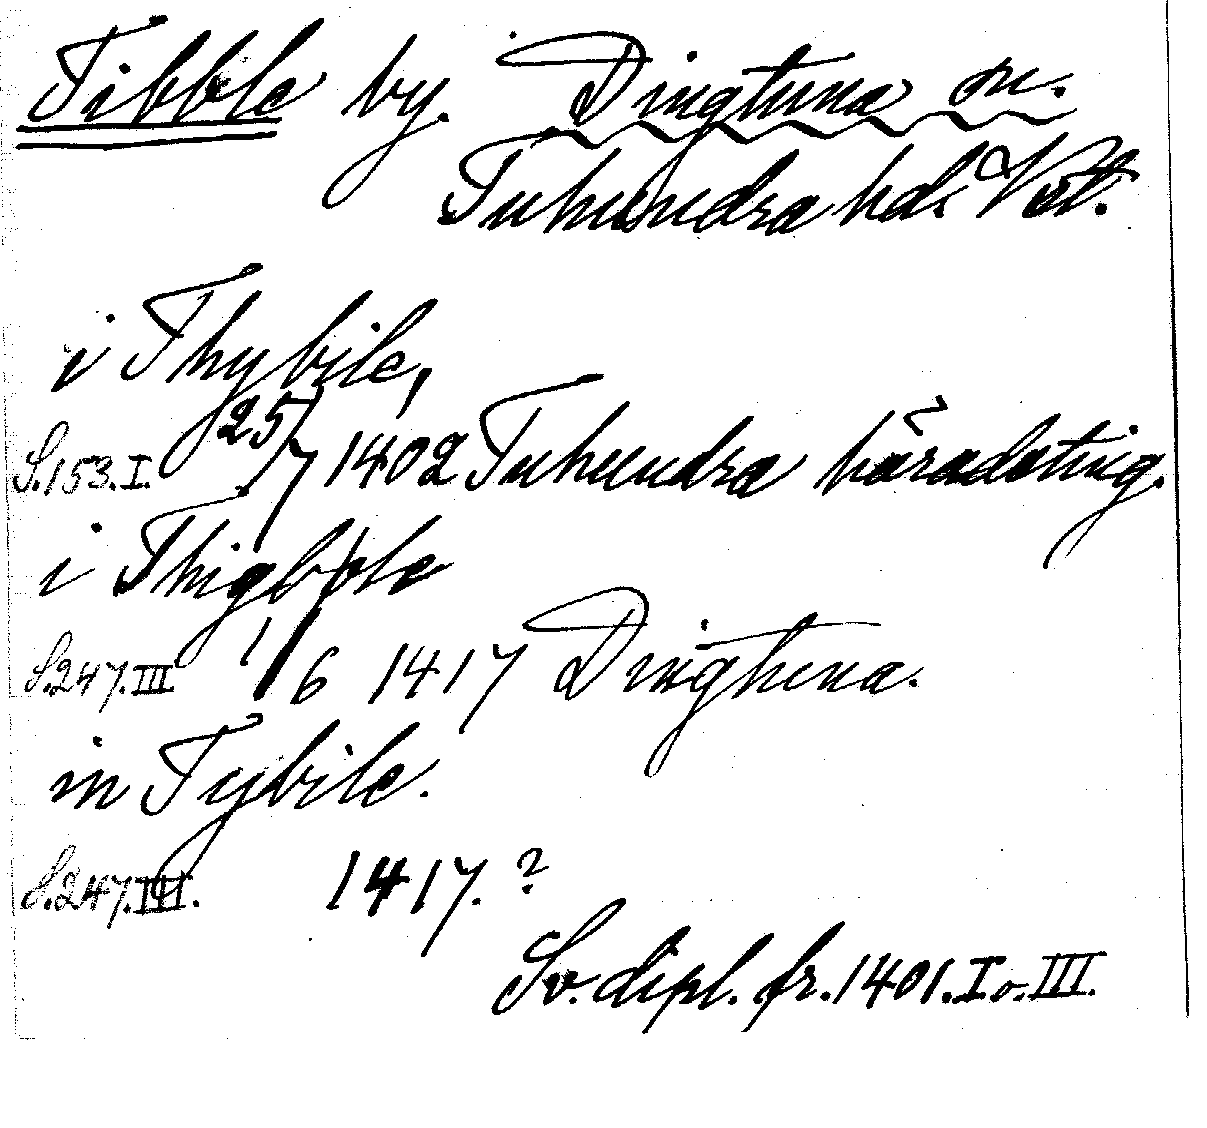 Tibble by. Dingtuna sn.
Tuhundra hd. Vst.
i Thybile,
S.153.I. 25/7 1402 Tuhundra häradsting.
i Thigbble
S.247.III 1/6 1417 Dinghtuna.
in Tybile.
S.247.III. 1417.?
Sv. dipl. fr. 1401. I o. III.